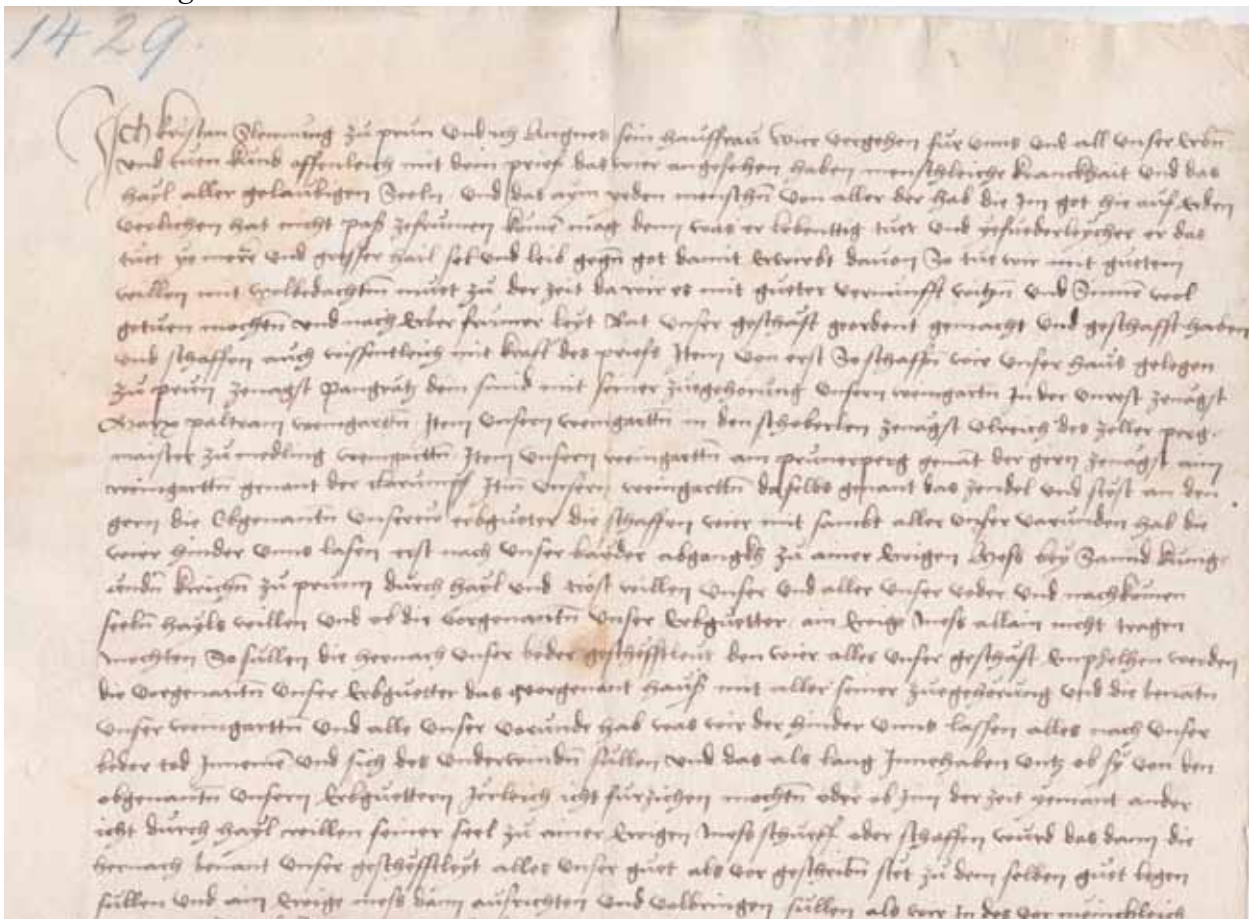 1429.
Ich kristan zu prun und ich Angnes sein hausfrau wir vergehen fur unns und all unser erbn
und tuen kund offenleich mit dem prief das wier angesehen haben menschleiche kranckhait und das
hayl aller gelaubigen Seeln und das aym yeden menschn von aller der hab die im got hie auf erden
verlichen hat nicht pas zefrumen kome mag denn was er lebenttig tuet und er das
tuet ye mere und grosser hail sel und leib gegn got damit erwirbt davon So tue wir mit guetem
willen mit wolbedachtem muet zu der zeit da wir es mit gueter vernunfft witzn und Sinne wol
getuen mochtn und nach erber frumer leyt Rat unser geschaft geordent gemacht und geschafft haben
und schaffen auch wissentleich mit kraft des priefs Item von erst So schaffn wir unser haus gelegen
zu prun zenagst Pangratz dem mit seiner zuegehorung unsern weingartn In der zenagst
paltram weingartn Item unsern weingarttn in den zenagst Ulreich des zeller perg
maister zu medling weingarttn Item unsern weingarttn am prunerperg genat der gern zenagst aim
weingarttn genant der Itm unsern weingarttn daselbs genant das und stost an den
gern die Obgenantn unsere erbgueter die schaffen wier mit sambt aller unser varunden hab die
wier hinder unns lasen erst nach unser bayder abgangkh zu ainer ewigen Mess bey Sannd kunge
undn kirichn zu prunn durch hayl und trost willen unser und aller unser voder und nachkomen
seeln hayls willen und ob die vorgenantn unser erbguetter am ewige mess allain nicht tragen
mochten So sullen die hernach unser beder geschefftleut den wier alles unser geschaft emphelhen werden
die vorgenantn unser erbguetter das vorgenant haus mit aller seiner zuegehorung und die benantn
unser weingarttn und alle unser varunde hab was wir der hinder unns lassen alles nach unser
beder tod Inneme und sich des underwindn sullen und das als lang Innehaben untz ob sy von den
obgenantn unsern erbguettern Jerleich icht furzichen mochtn oder ob Inn der zeit yemant ander
icht durch hayl willen seiner seel zu ainer ewigen mess oder schaffen wurd das dann die
hernach benant unser geschefftleyt alles unser guet als vor geschribn stet zu dem selben guet legen
sullen und ain ewige mess dann ausrichten und volbringen sullen als wir In des